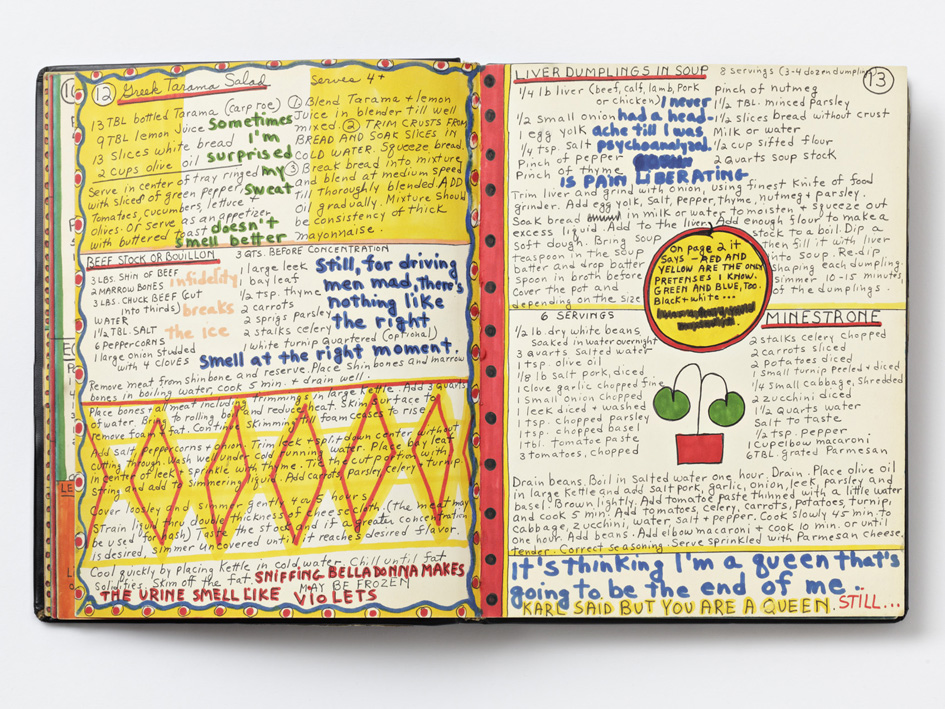 12 Greek Tarama Salad Serves 4+
13 TBL bottled Tarama (carp roe)
9 TBL lemon Juice
13 slices white bread
2 cups olive oil
Serve in center of tray ringed
with sliced green pepper,
Tomatoes, cucumbers, lettuce +
olives. Or serve as an appetizer
with buttered toast
① Blend Tarama + lemon
Juice in blender till well
mixed. ② TRIM CRUSTS FROM
BREAD AND SOAK SLICES IN
COLD WATER. Squeeze bread.
③ Break bread into mixture
and blend at medium speed
Till Thoroughly blended ADD
Oil gradually. Mixture Should
be consistency of thick
mayonnaise.
Sometimes
I'm
surprised
my
sweat
doesn't
smell better
BEEF STOCK OR BOUILLON 3 QTS. BEFORE CONCENTRATION
3 LBS. SHIN OF BEEF
2 MARROW BONES
3 LBS. CHUCK BEEF (cut
into thirds)
WATER
1½ TBL. SALT
6 PEPPERCORNS
1 large onion studded
with 4 cloves
1 large leek
1 bay leaf
½ tsp. thyme
2 carrots
2 sprigs parsley
2 stalks celery
1 white turnip quartered (optional)
infidelity
breaks
the ice
Still, for driving
men mad, there's
nothing like
the right
smell at the right moment.
Remove meat from shinbone and reserve. Place shin bones and marrow
bones in boiling water, cook 5 min. + drain well.
Place bones + all meat including trimmings in large Kettle. Add 3 quarts
of water. Bring to rolling boil and reduce heat. Skim surface to
remove foam + fat. Continue skimming till foam ceases to rise
Add salt, peppercorns + onion. Trim leek + split down center without
cutting through. Wash well under cold running water. Place bay leaf
in center of leek + sprinkle with thyme. Tie the cut portion with
string and add to simmering liquid. Add carrots, parsley, celery + turnip.
Cover loosely and simmer gently 4 or 5 hours
Strain liquid thru double thickness of cheesecloth (The meat may
be used for hash) Taste the stock and if a greater concentration
is desired, simmer uncovered until it reaches desired flavor.
Cool quickly by placing Kettle in cold water. Chill until fat
solidifies. Skim off the fat. MAY BE FROZEN
SNIFFING BELLADONNA MAKES
THE URINE SMELL LIKE VIOLETS
LIVER DUMPLINGS IN SOUP 8 servings (3-4 dozen dumplings) 13
¼ lb liver (beef, calf, lamb, Pork
or chicken)
½ Small onion
1 egg yolk
¼ tsp. Salt
Pinch of pepper
Pinch of thyme
pinch of nutmeg
1½ TBL. minced parsley
1½ slices bread without crust
Milk or water
½ cup sifted flour
2 Quarts soup stock
I never
had a head-
ache till I was
psychoanalyzed.
IS PAIN LIBERATING
Trim liver and grind with onion, using finest Knife of food
grinder. Add egg yolk, Salt, pepper, thyme, nutmeg + parsley.
Soak bread in milk or water to moisten + squeeze out
excess liquid. Add to the liver. Add enough flour to make a
Soft dough. Bring soup stock to a boil. Dip a
teaspoon in the soup then fill it with liver
batter and drop batter into soup. Re-dip
spoon in broth before shaping each dumpling.
Cover the pot and simmer 10-15 minutes,
depending on the size of the dumplings.
On page 2 it
says - RED AND
YELLOW ARE THE ONLY
PRETENSES I KNOW.
GREEN AND BLUE, TOO.
Black + white...
6 SERVINGS MINESTRONE
½ lb. dry white beans,
Soaked in water overnight
3 quarts Salted water
1 tsp. olive oil
⅛ lb Salt pork, diced
1 clove garlic chopped fine
1 Small onion chopped
1 leek diced + washed
1 tsp. chopped parsley
1 tsp. chopped basel
1 tbl. Tomato paste
3 tomatoes, chopped
2 stalks celery chopped
2 carrots sliced
2 Potatoes diced
1 Small turnip peeled + diced
¼ Small cabbage, Shredded
2 zucchini diced
1½ Quarts water
Salt to taste
½ tsp. pepper
1 Cup elbow macaroni
6 TBL. grated Parmesan
Drain beans. Boil in Salted water one hour. Drain. Place olive oil
in large Kettle and add salt pork, garlic, onion, leek, parsley and
basil. Brown lightly. Add tomato paste thinned with a little water
and cook 5 min. Add tomatoes, celery, carrots, potatoes, turnip,
cabbage, zucchini, water, salt + pepper. Cook Slowly 45 min. to
one hour. Add beans. Add elbow macaroni + Cook 10 min. or until
tender. Correct seasoning. Serve sprinkled with Parmesan cheese.
It's thinking I'm a queen that's
going to be the end of me..
KARL SAID BUT YOU ARE A QUEEN. STILL...